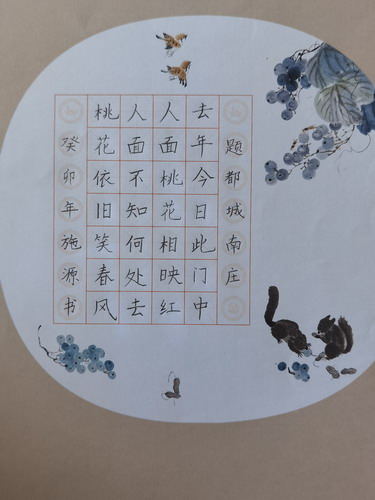 题都城南庄
去年今日此门中
人面桃花相映红
人面不知何处去
桃花依旧笑春风
癸卯年施源书